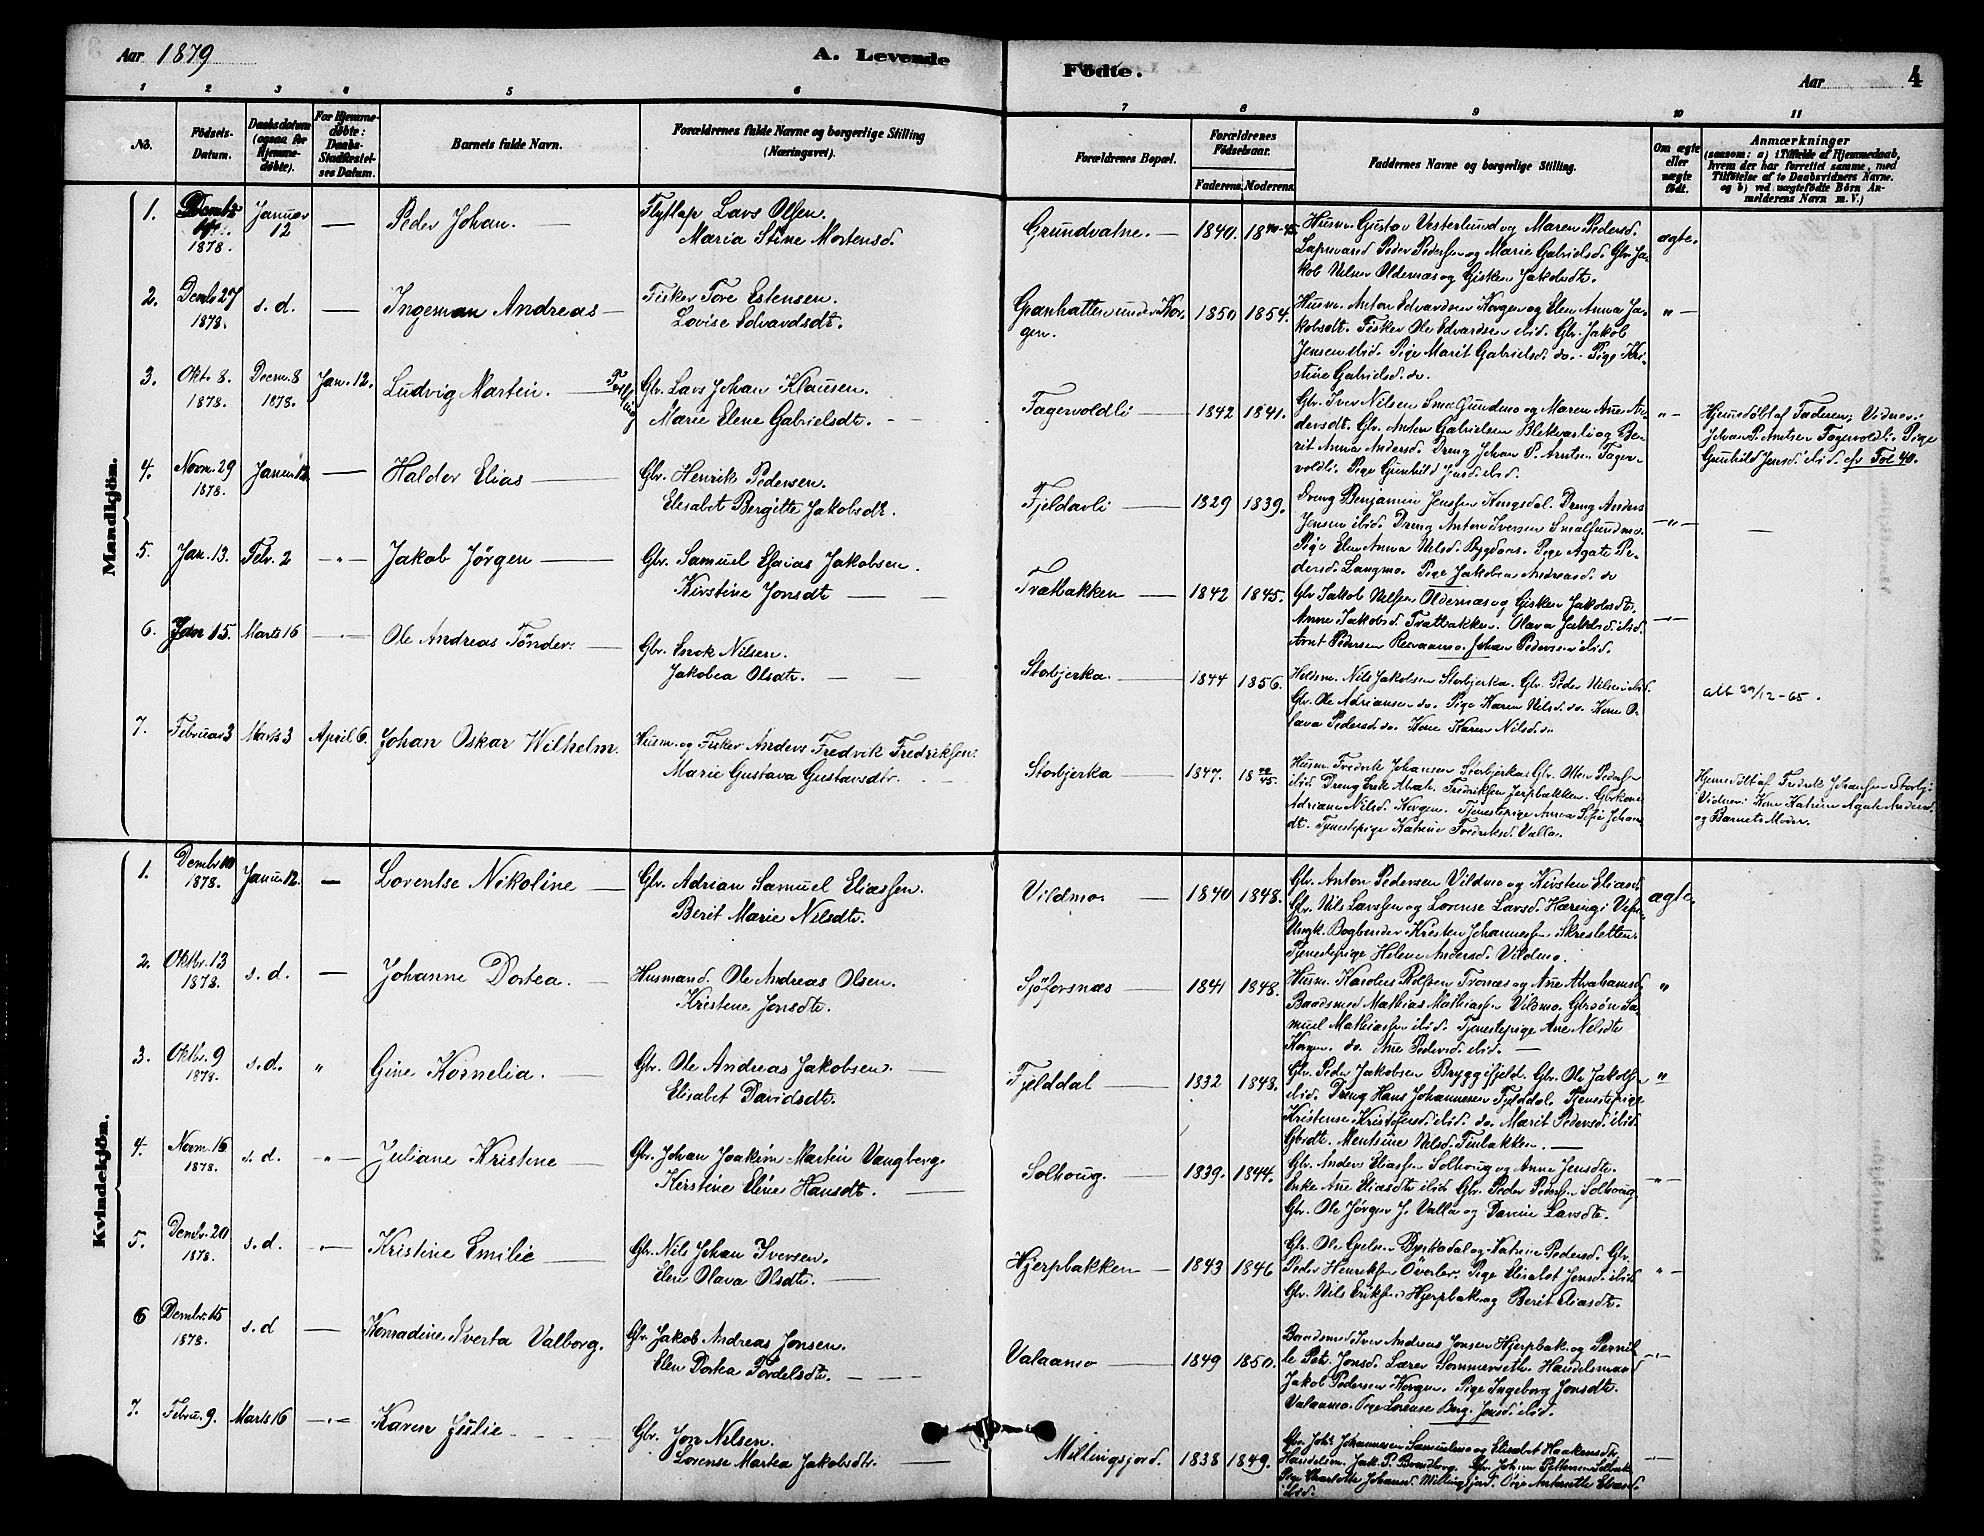 Aar 1879
A. Levende
Födte.
Aar
4
1 2 3 4 5 6 7 8 9 10 11
No.
Födsels-
Datum.
Daabsdatum
(ogsaa for
Hjemme-
döbte).
For Hjemme-
döbte:
Daabs-
Stadfæstel-
ses Datum.
Barnets fulde Navn.
Forældrenes fulde Navne og borgerlige Stilling
(Næringsvei).
Forældrenes Bopæl.
Forældrenes
Födselsaar.
Faderens. Moderens.
Faddernes Navne og borgerlige Stilling.
Om ægte
eller
uægte
födt.
Anmærkninger
(saasom: a) i Tilfælde af Hjemmedaab,
hvem der har forrettet samme, med
Tilföielse af to Daabsvidners Navne.
og b) ved uægtefödte Börn An-
melderens Navn m. V.)
Mandkjön.
1. 1878. Januar 12 — Peder Johan. —
Flytlap Lars Olsen.
Maria Stine Mortensd.
Grundvatne. — 1840. 1840-45.
Husm. Gustav Vesterlund og Maren Pedersd.
Lapmand Peder Pedersen og Marie Gabrielsd. Gbr. Ja-
kob Nilsen Oldernæs og Gisken Jakobsdt.
ægte.
2. Decmb. 27 1878. s. d. — Ingeman Andreas —
Fisker Tore Estensen.
Lovise Edvardsdt.
Granhatten under Kor-
gen. 1850 1854.
Husm. Anton Edvardsen Korgen og Elen Anna Ja-
kobsdt. Fisker Ole Edvardsen ibid. Gbr. Jakob
Jensen ibid. Pige Marit Gabrielsd. do. Pige Kri-
stine Gabrielsd. do.
" —
3. Okt. 8. 1878. Decm. 8 1878. Jan. 12. Ludvig Martin. — Tvilling
Gbr. Lars Johan Klausen.
Marie Elene Gabrielsdt. —
Fagervoldli — 1842 1841.
Gbr. Iver Nilsen Smalsundmo og Maren Ane An-
dersdt. Gbr. Anton Gabrielsen Blekvasli og Be-
rit Anna Andersd. Dreng Johan P. Arntsen Fager-
voldli. Pige Gunhild Jensd. ibid.
" —
Hjemedöbt af Faderen; Vidner:
Johan P. Arntsen Fagervoldli. Pige
Gunhild Jensd. ibid. cfr Fol 40.
4. Novm. 29 1878. Januar 12. — Haldor Elias —
Gbr. Henrik Pedersen.
Elisabet Bergitte Jakobsdt.
Fjeldavli — 1829 1839.
Dreng Benjamin Jensen Kongsdal. Dreng Anders
Jensen ibid. Dreng Anton Iversen Smalsundmo.
Pige Elen Anna Nilsd. Bygdaas. Pige Agate Pe-
dersd. Langmo. Pige Jakobea Andreasd. do
—"— —
5. Jan. 13. Febr. 2 —"— Jakob Jørgen —
Gbr. Samuel Esaias Jakobsen.
Kirstine Jonsdt — —
Tratbakken — 1842 1845.
Gbr Jakob Nilsen Oldernæs og Gisken Jakobsdt.
Anne Jakobsd. Tratbakken. Olava Jakobsd. ibid.
Arnt Pedersen Resvaamo. Johan Pedersen ibid.
—"—
6. Jan 15. Marts 16 —"— Ole Andreas Tønder. —
Gbr. Enok Nilsen.
Jakobea Olsdt. — —
Storbjerka. — 1844 1856.
Husm. Nils Jakobsen Storbjerka. Gbr. Peder Nilsen ibid.
Gbr. Ole Adriansen do. Pige Karen Nilsd. do. Kone O-
lava Pedersd. do. Kone Karen Nilsd. do
att 29/12-65.
7. Februar 3 Marts 3 April 6. Johan Oskar Wilhelm.
Husm. og Fisker Anders Fredrik Fredriksen.
Marie Gustava Gustavsdtr. —
Storbjerka — 1847. 18
Husm. Fredrik Johansen Storbjerka. Gbr. Otter Pedersen
ibid. Dreng Erik Abrah. Fredriksen Jerpbakken. Gbrkone
Adriane Nilsd. Korgen. Tjenestepige Anna Sofie Johan-
dt. Tjenestepige Katrine Fredriksd. Valla.
Hjemedöbt af Fredrik Johansen Storbj.
Vidner: Kone Katrine Agate Andersd.
og Barnets Moder.
Kvindekjön.
1. Decmb. 10 1878. Januar 12. — Lorentse Nikoline —
Gbr. Adrian Samuel Eliassen.
Berit Marie Nilsdt.
Vildmo. — 1840 1848.
Gbr. Anton Pedersen Vildmo og Kirsten Eliasd.
Gbr. Nils Larssen og Lorense Larsd. Hæring i Vefsn.
Ungk. Bogbinder Kristen Johannessen Skresletten.
Tjenestepige Helene Andersd. Vildmo.
ægte.
2. Oktbr. 13 1878. s. d. — Johanne Dortea. —
Husmand. Ole Andreas Olsen.
Kristene Jonsdt.
Sjöforsnæs — 1841 1848.
Husm. Karolus Rolfsen Tronæs og Ane Abrahamsd.
Baadsmed Mathias Mathiassen Vildmo. Gbrsøn Sa-
muel Mathiassen ibid. Tjenestepige Ane Nilsdt
Korgen. do. Ane Pedersd. ibid. —
"
3. Oktbr. 9 1878. s. d. " Gine Kornelia. —
Gbr. Ole Andreas Jakobsen. —
Elisabet Davidsdt.
Fjelddal — 1832 1848.
Gbr. Peder Jakobsen Bryggefjeld. Gbr. Ole Jakobsen
ibid. Dreng Hans Johannessen Fjelddal. Tjenestepige
Kristense Kristofersd. ibid. do. Marit Pedersd. ibid.
Gbrdt. Mentsine Nilsd. Finbakken. —
"
4. Novm. 16 1878. s. d. "— Juliane Kristine —
Gbr. Johan Joakim Martin Vangberg.
Kirstine Eline Hansdt. —
Solhoug. — 1839. 1844.
Gbr. Anders Eliassen Solhoug og Anne Jensdt.
Enke Ane Eliasdt ibid. Gbr. Peder Pedersen Solhoug
Gbr. Ole Jørgen J. Valla og Davine Larsdt.
—"—
5. Decmb. 20 1878. s. d. —"— Kristine Emilie —
Gbr. Nils Johan Iversen.
Elen Olava Olsdt. —
Hjerpbakken — 1843 1846
Gbr. Ole Gjelsen Byrkadal og Katrine Pedersd. Gbr.
Peder Henriksen Överler. Pige Elisabet Jonsd. ibid.
Gbr. Nils Eriksen Hjerpbak og Berit Eliasdt.
" —
6 Decmbr. 15 1878. s. d — Konradine Iverta Valborg.
Gbr. Jakob Andreas Jonsen.
Elen Dortea Tordelsdt. — —
Valaamo — 1849 1850.
Baadsmed Iver Andreas Jonsen Hjerpbak. og Pernil-
le Petr. Jonsd. Lærer Sommerseth. Handelsmand
Jakob Pedersen Korgen. Pige Ingeborg Jonsdt.
Valaamo. Pige Lorense Berg. Jonsd. ibid.
—"—
7. Febru. 9. Marts 16 —"— Karen Julie. — — —
Gbr. Jon Nilsen.
Lorense Martea Jakobsdt. —
Millingsjord. 1838 1849.
Gbr. Johs. Johannesen Samuelmo og Elisabet Haakensdt.
Handelsm. Jak. P. Brandborg. Gbr. Johan Pettersen Solbak
Pige Charlotte Johansd. Millingsjord. Pige Antonette Eliasd.
ibid.
—"—